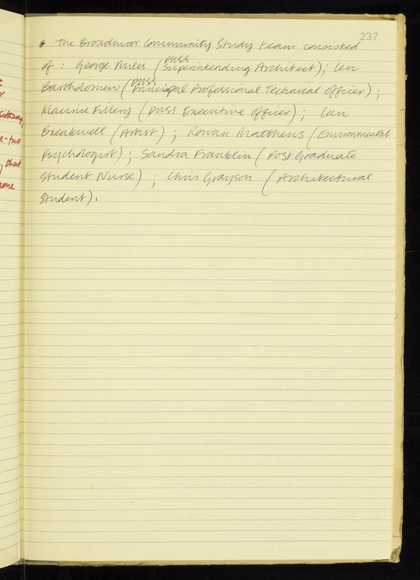 237
* The Broadmoor Community Study Team consisted
of : George Miles (DHSS Superintending Architect); Len
Bartholomew (DHSS Principal Professional Technical Officer) ;
Maurice Fillery (DHSS Executive Officer) ; Ian
Breakwell (Artist) ; Rowan Matthews (Environmental
Psychologist) ; Sandra Franklin (Post Graduate
Student Nurse) ; Chris Grayson (Architectural
Student).
that